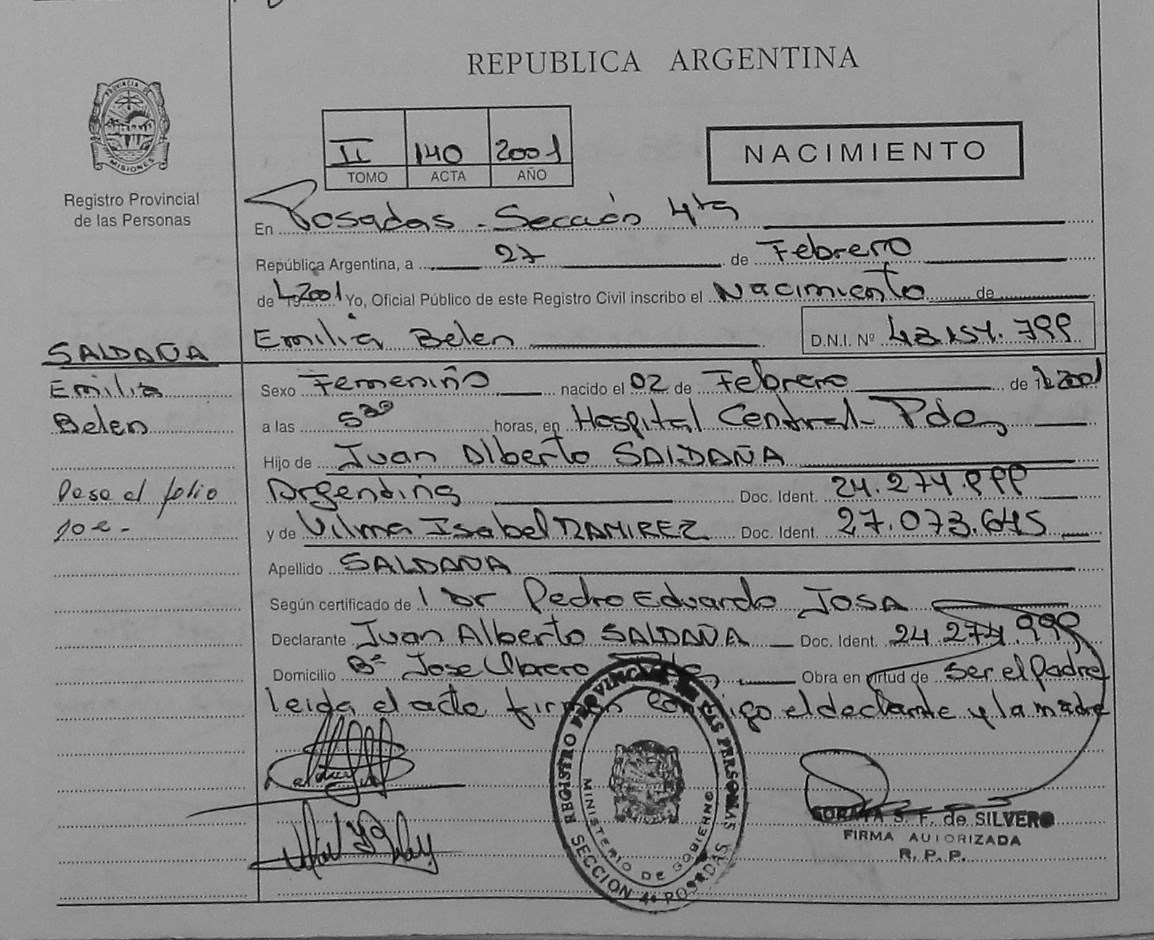 REPUBLICA ARGENTINA
PROVINCIA DE MISIONES
Registro Provincial
de las Personas
II 140 2001
TOMO ACTA AÑO
NACIMIENTO
En Posadas - Sección 4ta
República Argentina, a 27 de Febrero
de 2001 Yo, Oficial Público de este Registro Civil inscribo el Nacimiento de
Emilia Belen D.N.I. Nº 43.154.799
SALDAÑA
Emilia
Belen
Pase al folio
Sexo Femenino nacido el 02 de Febrero de 2001
a las 5 horas, en Hospital Central - Pdas
Hijo de Juan Alberto SALDAÑA
Argentina Doc. Ident. 24.274.999
y de Vilma Isabel RAMIREZ Doc. Ident. 27.073.645
Apellido SALDAÑA
Según certificado de l Dr Pedro Eduardo JOSA
Declarante Juan Alberto SALDAÑA Doc. Ident. 24.274.999
Domicilio Bº Jose Obrero Obra en virtud de Ser el Padre
leida el acta firman conmigo el declante y la madre
REGISTRO PROVINCIAL DE LAS PERSONAS
MINISTERIO DE GOBIERNO
SECCION 4ª POSADAS
F. de SILVERO
FIRMA AUTORIZADA
R. P. P.